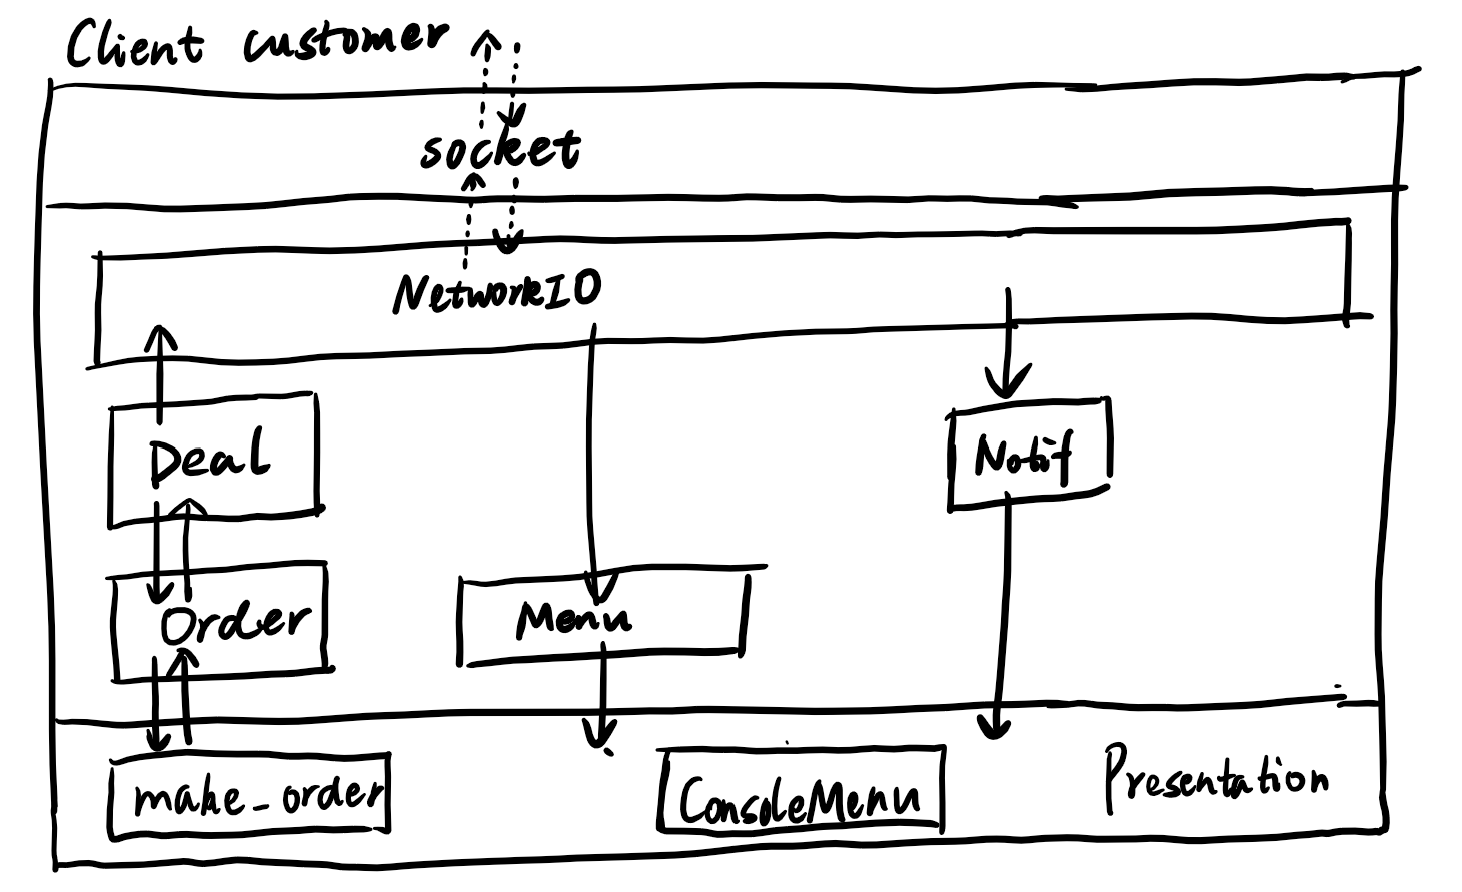 Client customer
socket
NetworkIO
Deal
Notif
Order
Menu
make_order
ConsoleMenu
Presentation